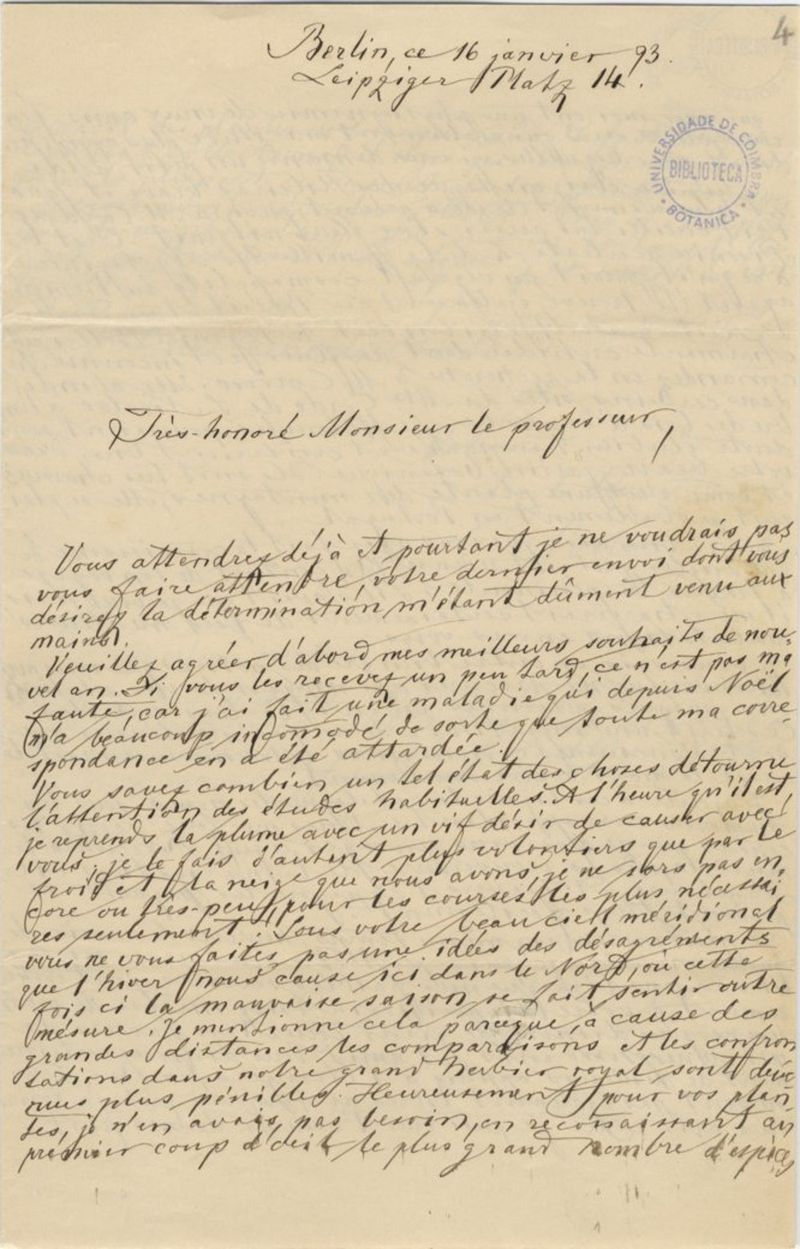 4
Berlin, ce 16 janvier 93.
Leipziger Platz 14.
UNIVERSIDADE DE COIMBRA
BIBLIOTECA
BOTANICA
Très-honoré Monsieur le professeur,
Vous attendrez déjà et pourtant je ne voudrais pas
vous faire attendre, votre dernier envoi dont vous
désirez la détermination m'étant dûment venu aux
mains.
Veuillez agréer d'abord mes meilleurs souhaits de nou-
vel an. Si vous les recevez un peu tard, ce n'est pas ma
faute, car j'ai fait une maladie qui depuis Noël
m'a beaucoup incomodé, de sorte que toute ma corre-
spondance en a été attardée.
Vous savez combien un tel état des choses détourne
l'attention des études habituelles. A l'heure qu'il est,
je reprends la plume avec un vif désir de causer avec
vous; je le fais d'autant plus volontiers que par le
froid et la neige que nous avons, je ne sors pas en-
core ou très-peu, pour les courses les plus nécessai
res seulement. Sous votre beau ciel méridional
vous ne vous faites pas une idées des désagréments
que l'hiver nous cause ici dans le Nord, où cette
fois ci la mauvaise saison se fait sentir outre
mesure. Je mentionne cela parceque, à cause des
grandes distances les comparaisons et les confron
tations dans notre grand herbier royal sont deve-
nues plus pénibles. Heureusement pour vos plan-
tes, je n'en avais pas besoin, en reconnaissant au
premier coup d'oeil le plus grand nombre d'espèces